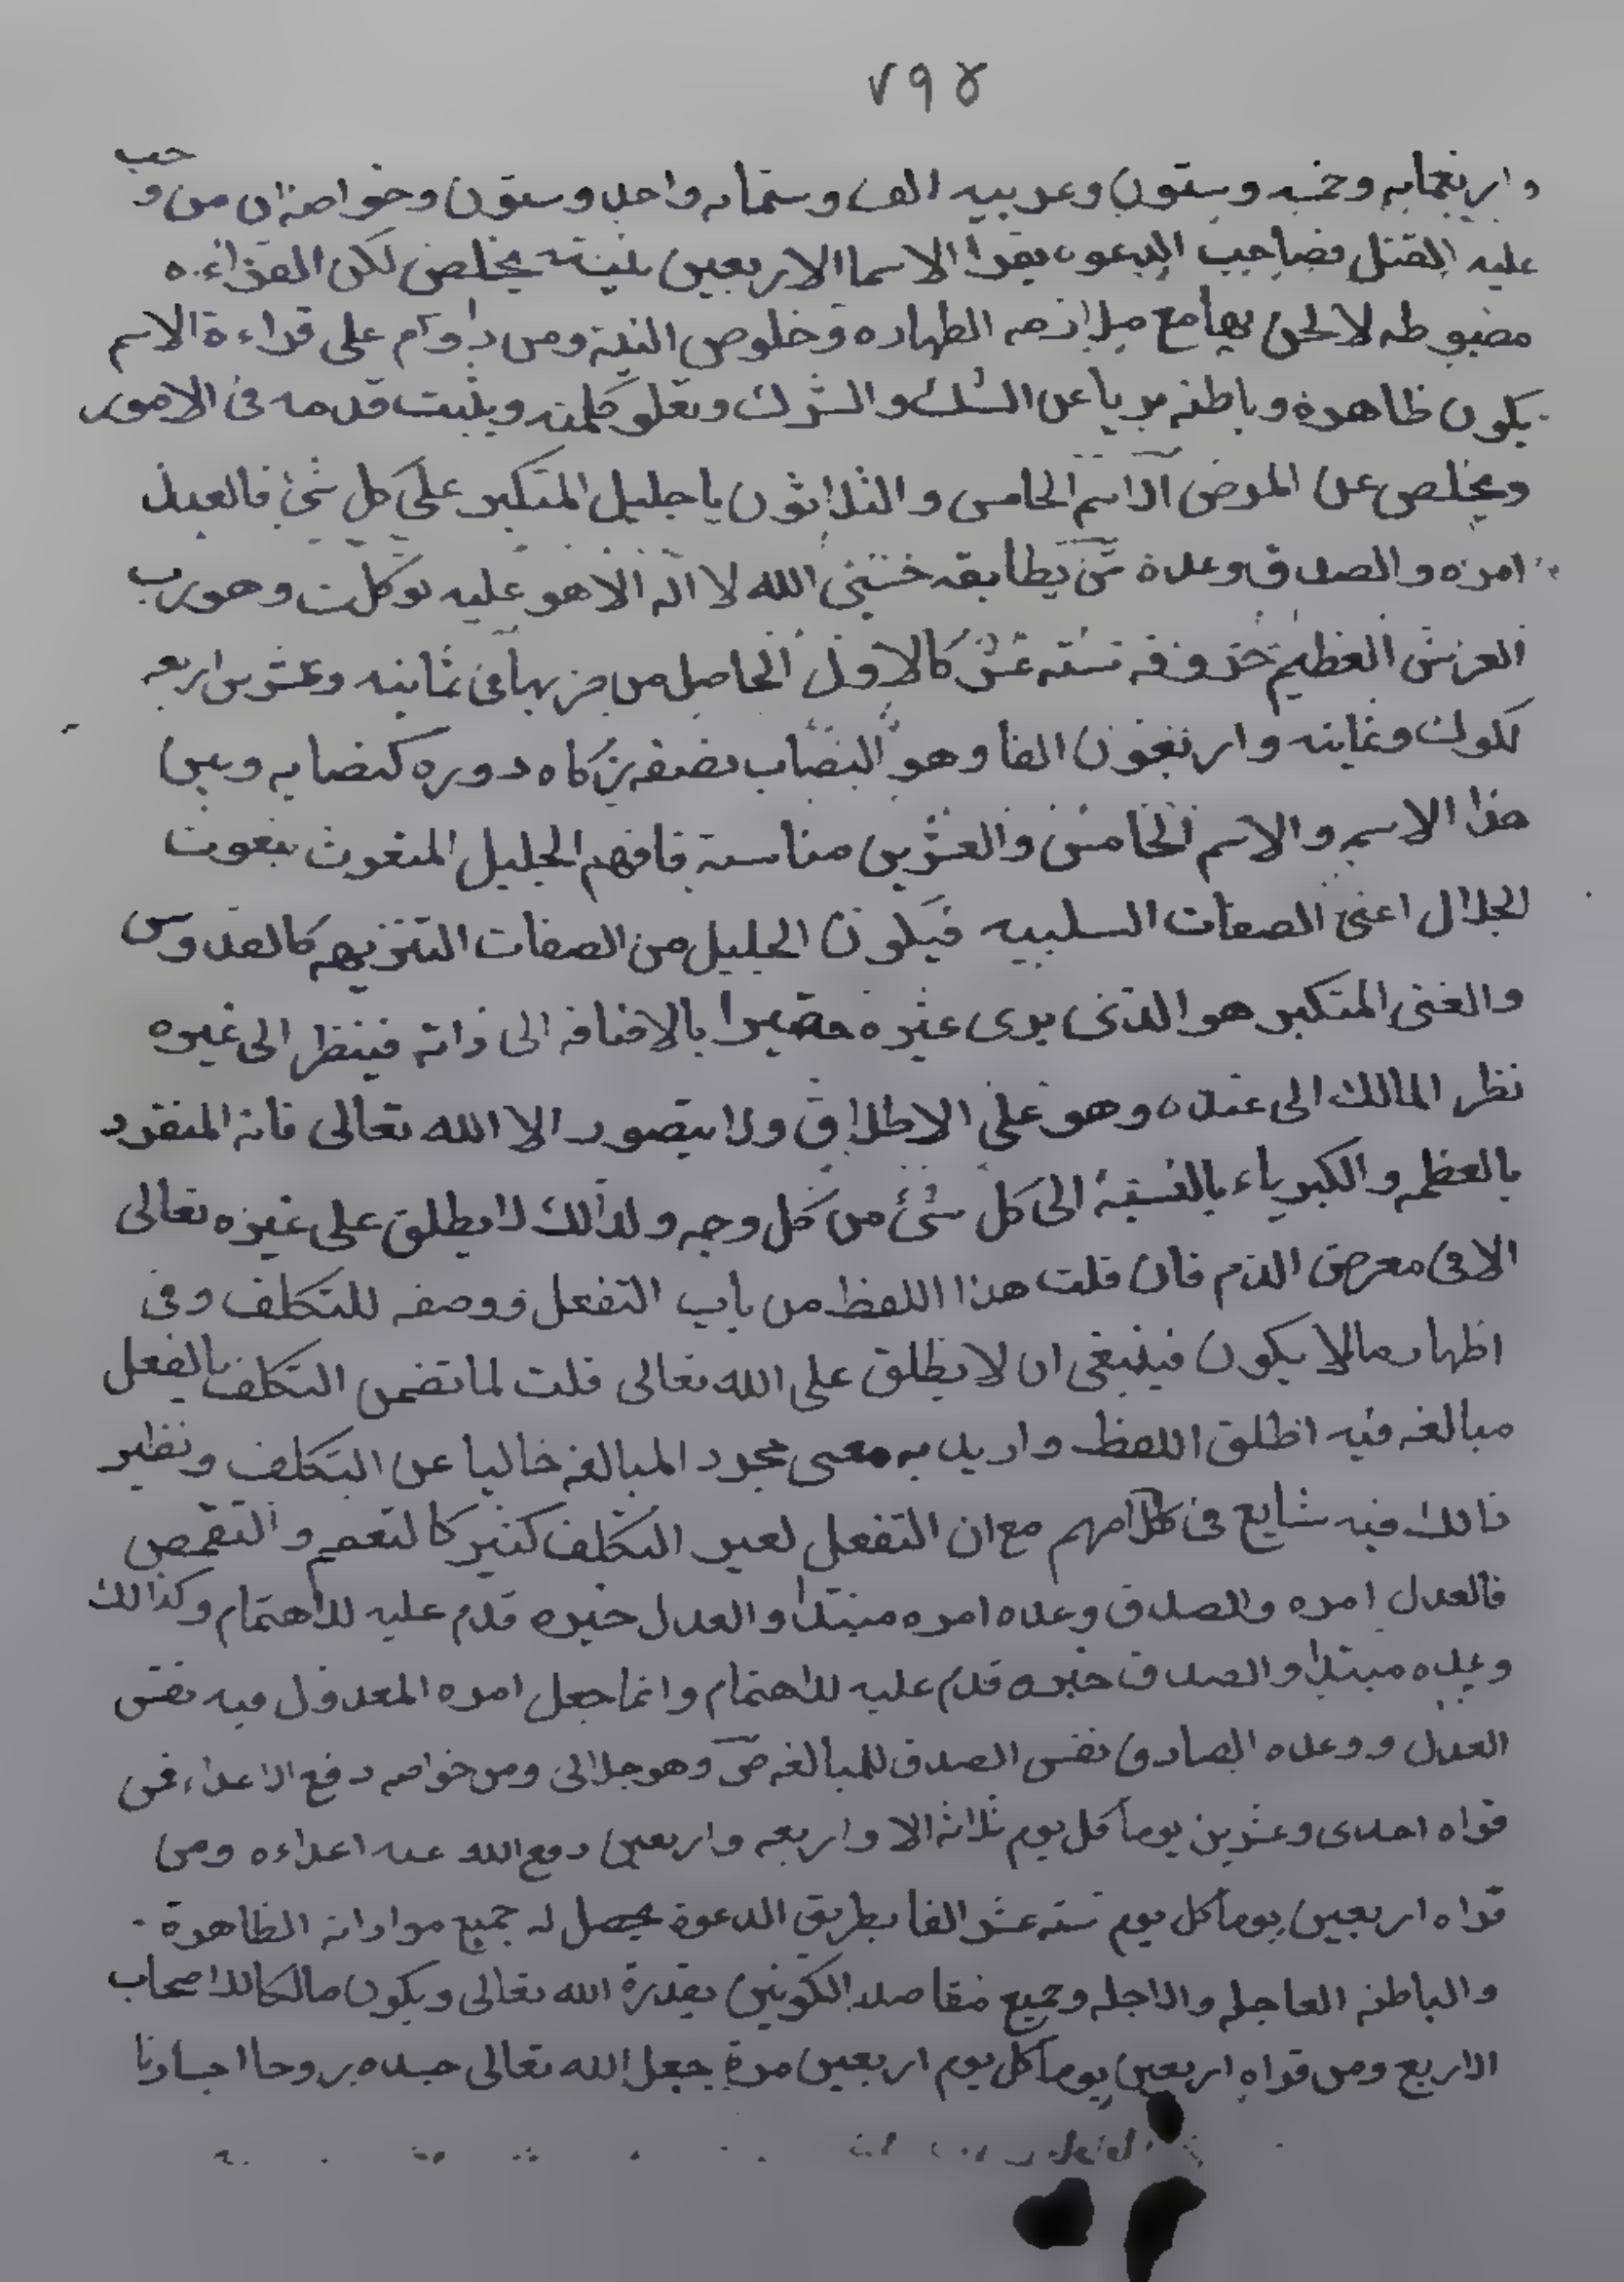 ٧٩٤
واربعمايه وخمسه وستون وعربيه الف وستمائه واحد وستون وخواصه ان من وجب
عليه القتل فصاحب الدعوه يقرا الاسما الاربعين بنيته يخلص لكن القراءه
مضبوطه لا لحن بها مع ملازمه الطهاره وخلوص النية ومن داوم على قراءة الاسم
يكون ظاهره وباطنه بريا عن الشك والشرك وتعلو كلمته ويثبت قدمه فى الامور
ويخلص عن المرض الاسم الخامس والثلاثون يا جليل المتكبر على كل شئ فالعدل
امره والصدق وعده يطابقه حسبى الله لا اله الا هو عليه توكلت وهو رب
العرش العظيم حروفه سته عشر كالاول الحاصل من ضربها فى ثمانيه وعشرين اربعه
لكوك وثمانيه واربعون الفا وهو النصاب نصفه زكاه دوره كنصابه وبين
هذا الاسم والاسم الخامس والعشرين مناسبة فافهم الجليل المنعوت بنعوت
الجلال اعنى الصفات السلبيه فيكون الجليل من الصفات التنزيهيه كالقدوس
والغنى المتكبر هو الذى يرى غيره حقيرا بالاضافه الى ذاته فينظر الى غيره
نظر المالك الى عبده وهو على الاطلاق ولا يتصور الا الله تعالى فانه المنفرد
بالعظمه والكبرياء بالنسبة الى كل شئ من كل وجه ولذالك لا يطلق على غيره تعالى
الا فى معرض الذم فان قلت هذا اللفظ من باب التفعل ووصفه للتكلف وفى
اظهار ما لا يكون فينبغى ان لا يطلق على الله تعالى قلت لما تضمن التكلف بالفعل
مبالغه فيه اطلق اللفظ واريد به معنى مجرد المبالغه خاليا عن التكلف ونظير
ذالك فيه شايع فى كلامهم مع ان التفعل لغير التكلف كثير كالتعمم والتقمص
فالعدل امره والصدق وعده امره مبتدا والعدل خبره قدم عليه للاهتمام وكذالك
وعده مبتدا والصدق خبره قدم عليه للاهتمام وانما جعل امره المعدول فيه نفس
العدل ووعده الصادق نفس الصدق للمبالغه وهو جلالى ومن خواصه دفع الاعداء فمن
قراه احدى وعشرين يوما كل يوم ثلاثه الا واربعه واربعين دفع الله عنه اعداءه ومن
قراه اربعين يوما كل يوم سته عشر الفا بطريق الدعوة يحصل له جميع مراداته الظاهرة
والباطنه العاجله والاجله وجميع مقاصد الكونين بقدرة الله تعالى ويكون مالكا لاصحاب
الاربع ومن قراه اربعين يوما كل يوم اربعين مرة جعل الله تعالى جسده بروحا اجسادنا